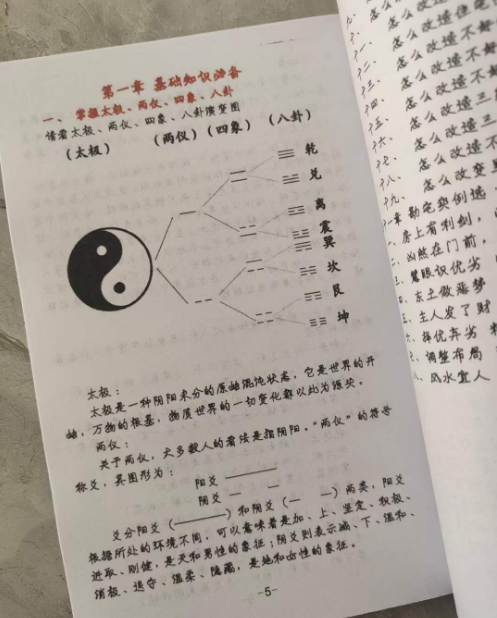 第一章 基础知识必备
一、掌握太极、两仪、四象、八卦
请看太极、两仪、四象、八卦演变图
(太极) (两仪)(四象) (八卦)
乾
兑
离
震
巽
坎
艮
坤
太极:
太极是一种阴阳未分的原始混沌状态,它是世界的开
始,万物的根基,物质世界的一切变化都以此为源头。
两仪:
关于两仪,大多数人的看法是指阴阳。“两仪”的符号
称爻,其图形为:
阳爻 ———
阴爻 — —
爻分阳爻(———)和阴爻(— —)两类,阳爻
根据所处的环境不同,可以意味着是加、上、坚定、积极、
进取、刚健,是天和男性的象征;阴爻则表示减、下、温和、
消极、退守、温柔、隐蔽,是地和女性的象征。
-5-
九、怎么
怎么改
十一、怎么改造
十二、怎么改造住宅
十三、怎么改造不
十四、怎么改造不
十五、怎么改造三
十六、怎么改造三
十七、怎么改造不
十八、怎么改造不
十九、怎么改变
章 勘宅实例选
一、房上有利剑,
二、凶煞在门前,
三、慧眼识优劣
四、东土做落梦
五、主人发了财
六、择优弃劣
七、调整布局
八、风水宜人